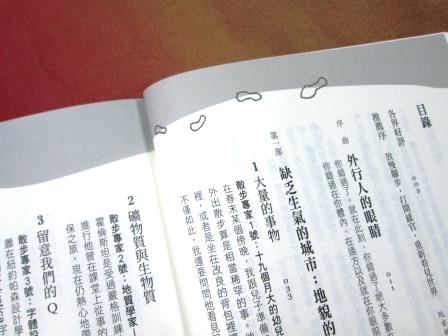 目錄
各界好評 002
推薦序 放慢腳步，打開感官，重新看見世界
序曲 外行人的眼睛
你錯過了，就在此刻，你錯過了絕大多數
你錯過在你體內、在遠方以及就在你
第一部
缺乏生氣的城市：地貌的
033
1 大量的事物
散步專家1號：十九個月大的幼兒
在春末某個傍晚，我跟兒子準備
外出散步算是相當稀罕的事。
裡，或者是坐在改良的背包裡
不僅如此，我還要問問他看見
2 礦物質與生物質
散步專家2號：地質學家
霍倫斯坦是受過嚴格訓練
進行他曾在課堂上從事的
保之旅，現在仍熱心地
3 留意我們的Q
散步專家3號：字體設
蕭在紐約帕森設計學